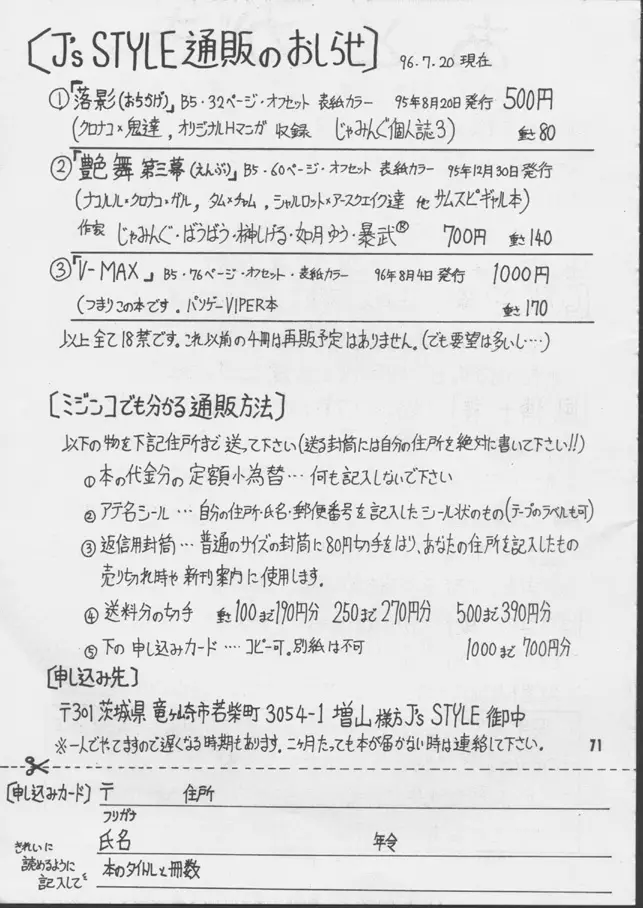 [J's STYLE 通販のおしらせ] 96.7.20 現在
①「落影(おちかげ)」B5・32ページ・オフセット 表紙カラー 95年8月20日発行 500円
(クロナコ×鬼達, オリジナルHマンガ 収録 じゃみんぐ個人誌3) 重さ80
②「艶舞 第三幕(えんぶ)」B5・60ページ・オフセット 表紙カラー 95年12月30日発行
(ナコルル×クロナコ×ガル, タム×チャム, シャルロット×アースクエイク達 他 サムスピギャル本)
作家 じゃみんぐ・ばうばう・榊しげる・如月ゆう・暴武® 700円 重さ140
③「V-MAX」B5・76ページ・オフセット・表紙カラー 96年8月4日発行 1000円
(つまりこの本です。パソゲーVIPER本 重さ170
以上全て18禁です。これ以前の4冊は再販予定はありません。(でも要望は多いし…)
[ミジンコでも分かる通販方法]
以下の物を下記住所まで送って下さい(送る封筒には自分の住所を絶対に書いて下さい!!)
①本の代金分の定額小為替…何も記入しないで下さい
②アテ名シール…自分の住所・氏名・郵便番号を記入したシール状のもの(テープのラベルも可)
③返信用封筒…普通のサイズの封筒に80円切手をはり、あなたの住所を記入したもの
売り切れ時や新刊案内に使用します。
④送料分の切手 重100まで190円分 250まで270円分 500まで390円分
⑤下の申し込みカード…コピー可。別紙は不可 1000まで700円分
[申し込み先]
〒301 茨城県 竜ヶ崎市若柴町3054-1 増山様方J's STYLE 御中
※一人でやてますので遅くなる時期もあります。二ヶ月たっても本が届かない時は連絡して下さい。 71
[申し込みカード] 〒 住所
フリガナ
氏名 年令
きれいに
読めるように
記入して
本のタイトルと冊数